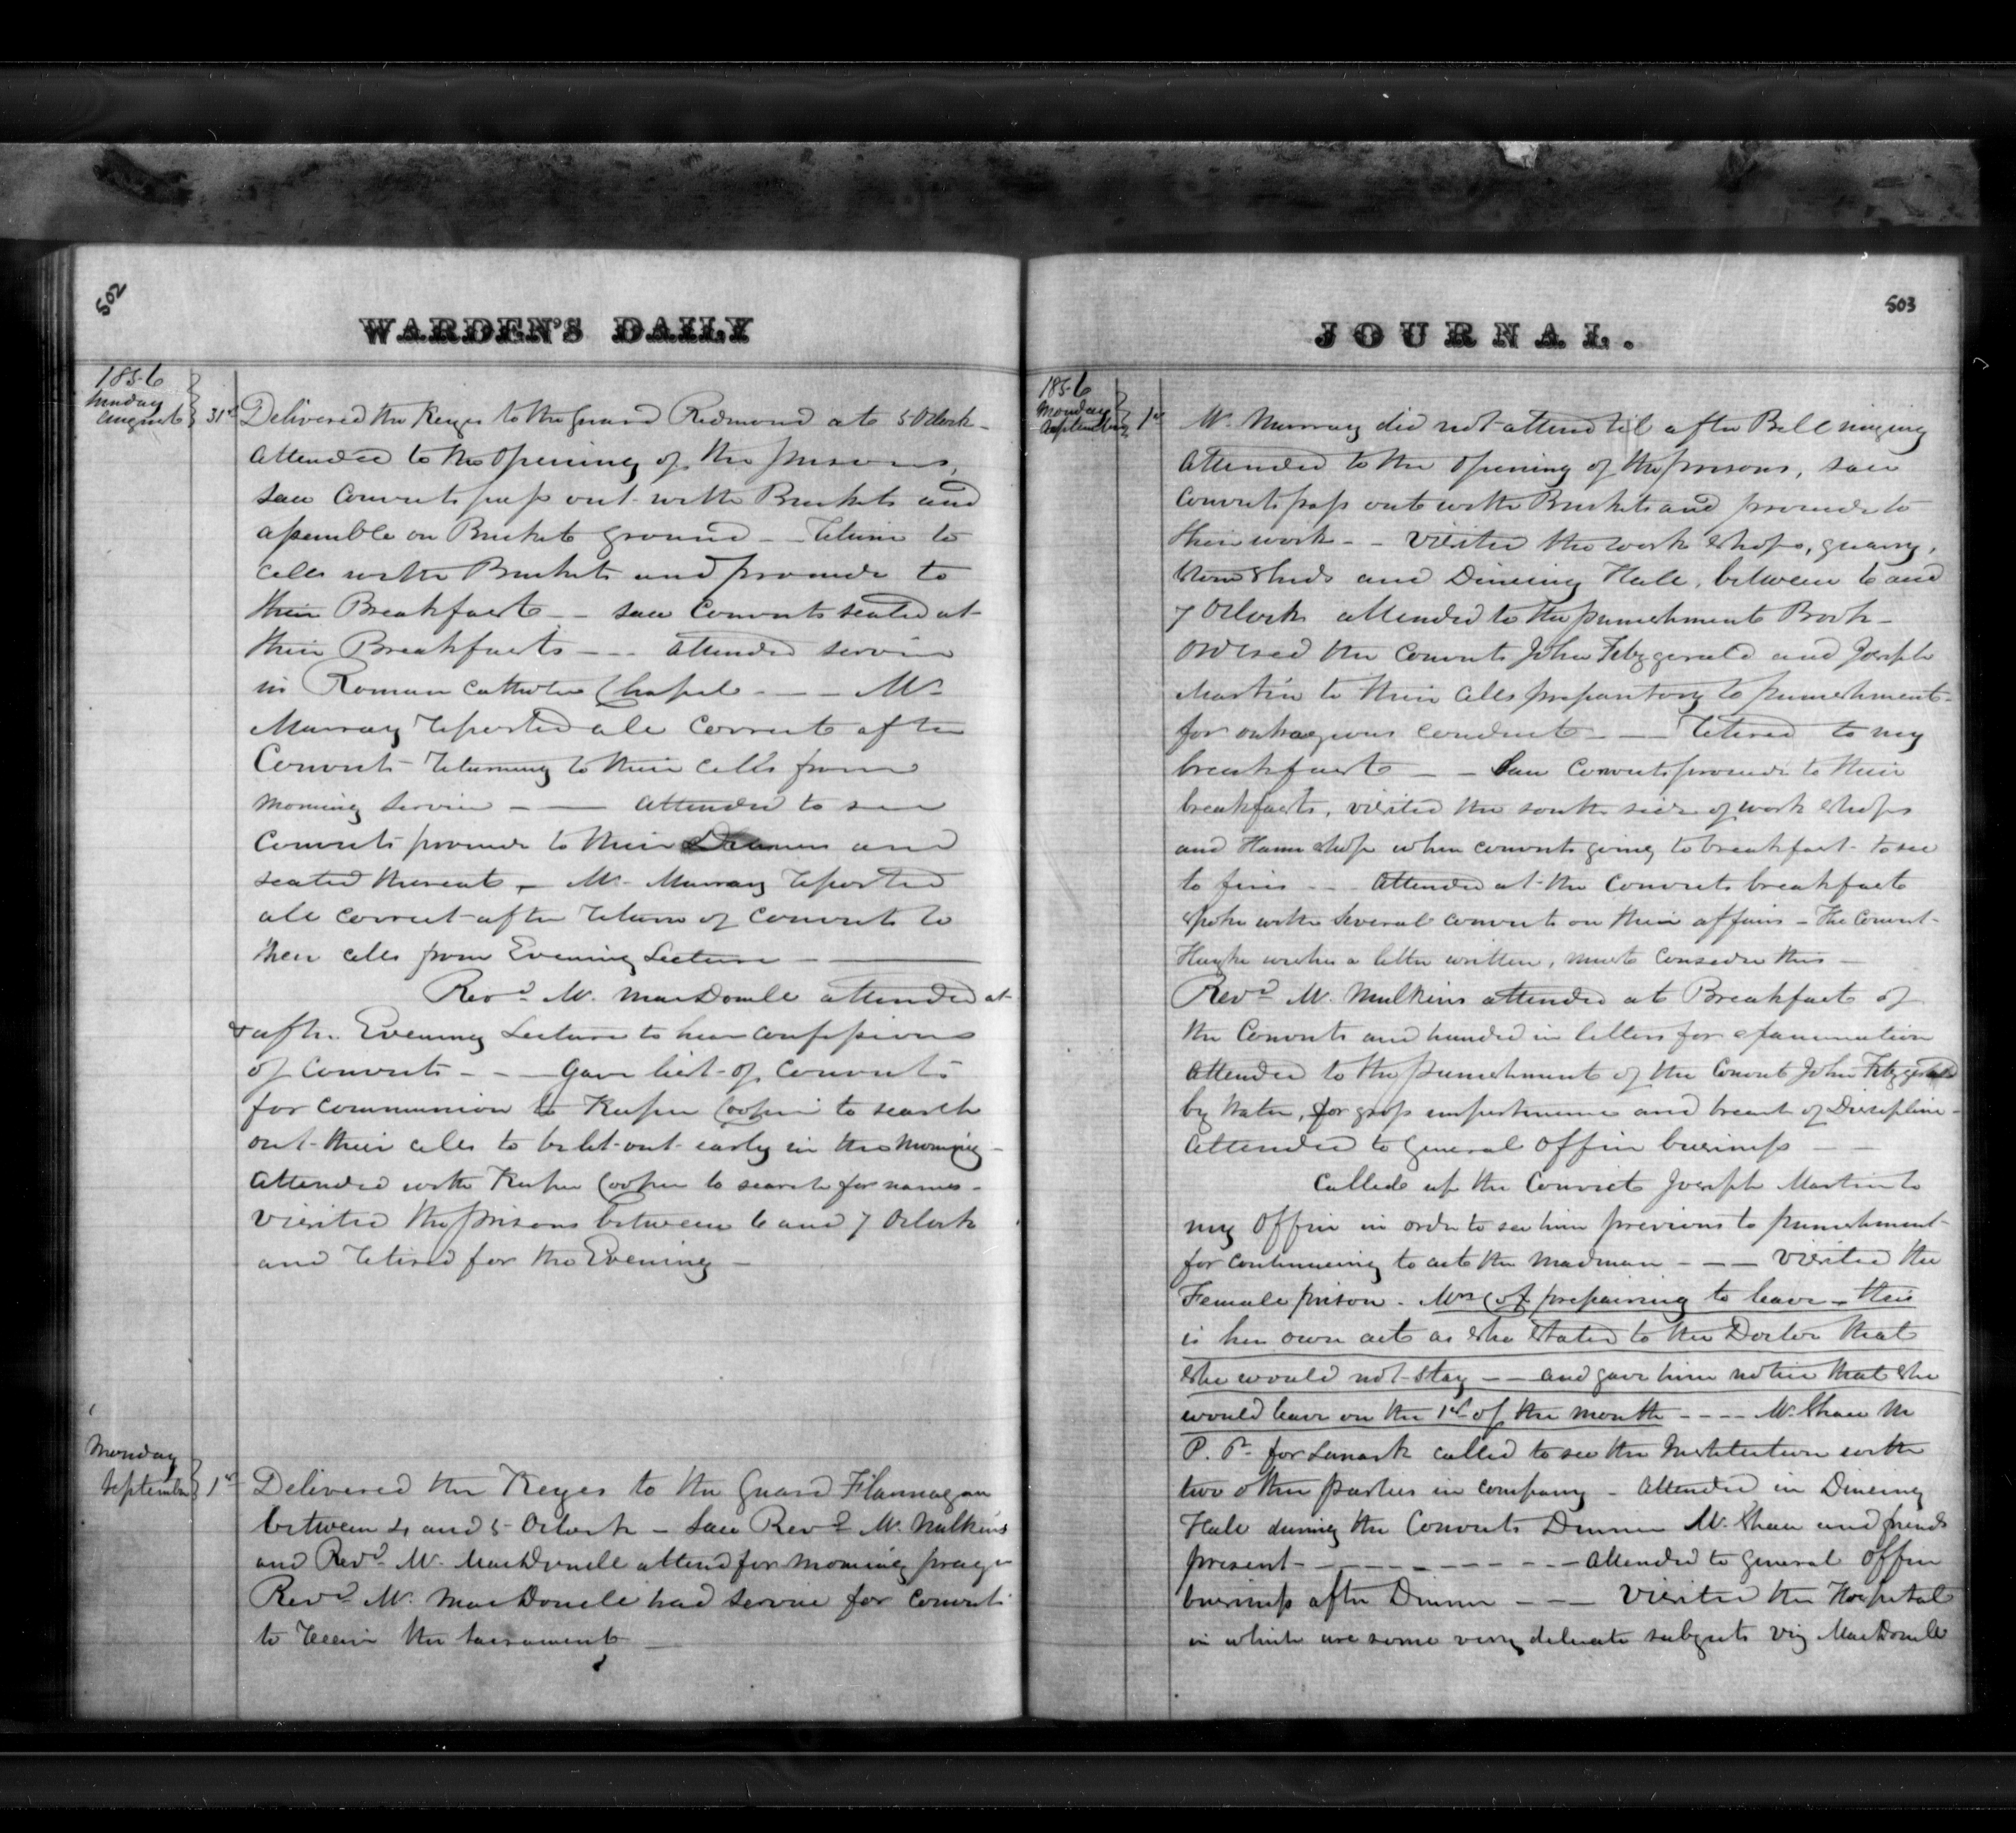 502
WARDEN'S DAILY
1856
Sunday
August 31st Delivered the Keyes to the guard Redmond at 5 OClock -
Attended to the opening of the prisons,
saw Convicts pass out with Buckets and
assemble on Bucket ground - - return to
Cells with Buckets and proceed to
their Breakfast - - saw Convicts seated at
their Breakfasts - - - attended service
in Roman Catholic Chapel - - - Mr
Murray reported all correct after
Convicts returning to their cells from
morning service - - attended to see
Convicts proceed to their Dinners and
seated thereat - Mr Murray reported
all correct after return of Convicts to
their cells from Evening Lecture -
Revd Mr MacDonell attended at
& after Evening Lecture to hear confessions
of Convicts - - - Gave list of Convicts
for communion to Keeper Cooper to search
out their cells to be let out early in the morning -
Attended with Keeper Cooper to search for names -
Visited the prisons between 6 and 7 OClock
and retired for the Evening -
Monday
September 1st Delivered the Keyes to the Guard Flannagan
between 4 and 5 OClock - Saw Revd Mr Mulkins
and Revd Mr MacDonell attend for morning prayer
Revd Mr MacDonell had service for Convicts
to receive the sacrament -
JOURNAL.
503
1856
Monday
September 1st Mr Murray did not attend til after Bell ringing
Attended to the opening of the prisons, saw
Convicts pass out with Buckets and proceed to
their work - - Visited the work shops, quarry,
stone sheds and Dineing Hall, between 6 and
7 OClock attended to the punishment Book -
Ordered the Convicts John Fitzgerald and Joseph
Martin to their cells preparitory to punishment
for outrageous conduct - - Retired to my
breakfast - - Saw Convicts proceed to their
breakfasts, visited the south side of work shops
and Hame shop when convicts going to breakfast to see
to fires - - Attended at the Convicts breakfast
spoke with several convicts on their affairs - The Convict
wishes a letter written, must consider this -
Revd Mr Mulkins attended at Breakfast of
the Convicts and handed in letters for examination
Attended to the punishment of the Convict John Fitzgerald
by Water, for gross impertinence and breach of Discipline -
Attended to general office business - -
Called up the Convict Joseph Martin to
my Office in order to see him previous to punishment
for continueing to act the madman - - - Visited the
Female prison. Mrs Cox prepairing to leave - this
is her own act as she stated to the Doctor that
she would not stay - - and gave him notice that she
would leave on the 1st of the month - - - - Mr Shaw M
P. P. for Lanark called to see the Institution with
two other parties in company - Attended in Dineing
Hall during the Convicts Dinner Mr Shaw and friends
present - - - - - - - - - attended to general office
business after Dinner - - - Visited the Hospital
in which are some very delicate subjects viz MacDonell